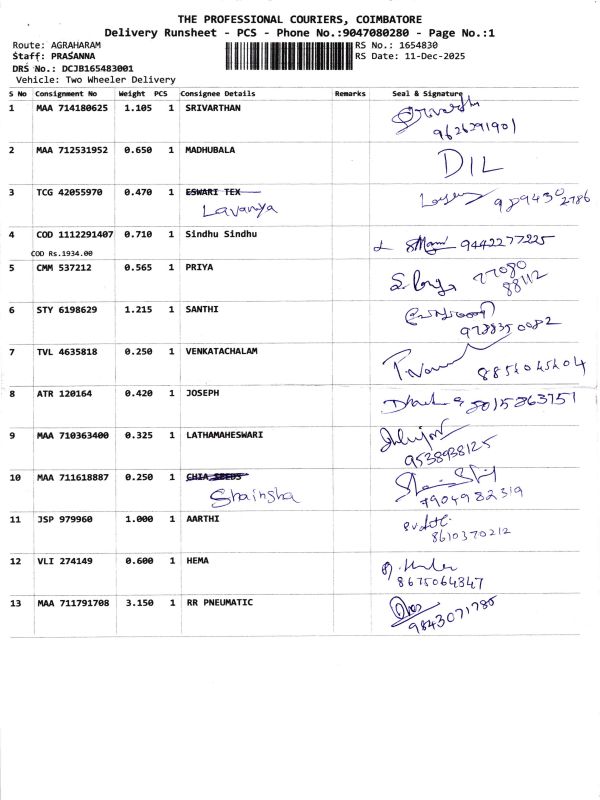 THE PROFESSIONAL COURIERS, COIMBATORE
Delivery Runsheet - PCS - Phone No.:9047080280 - Page No.:1
Route: AGRAHARAM RS No.: 1654830
Staff: PRASANNA RS Date: 11-Dec-2025
DRS No.: DCJB165483001
Vehicle: Two Wheeler Delivery
S No Consignment No Weight PCS Consignee Details Remarks Seal & Signature
1 MAA 714180625 1.105 1 SRIVARTHAN
9626291901
2 MAA 712531952 0.650 1 MADHUBALA DIL
3 TCG 42055970 0.470 1 ESWARI TEX
Lavanya 9894302786
4 COD 1112291407 0.710 1 Sindhu Sindhu 9442277225
COD Rs.1934.00
5 CMM 537212 0.565 1 PRIYA 77080
88112
6 STY 6198629 1.215 1 SANTHI
9788350082
7 TVL 4635818 0.250 1 VENKATACHALAM
8 ATR 120164 0.420 1 JOSEPH 8015863751
9 MAA 710363400 0.325 1 LATHAMAHESWARI
9538938125
10 MAA 711618887 0.250 1 CHIA SEEDS
Shainsha 7904982319
11 JSP 979960 1.000 1 AARTHI
8610370212
12 VLI 274149 0.600 1 HEMA
8675064347
13 MAA 711791708 3.150 1 RR PNEUMATIC
9843071785